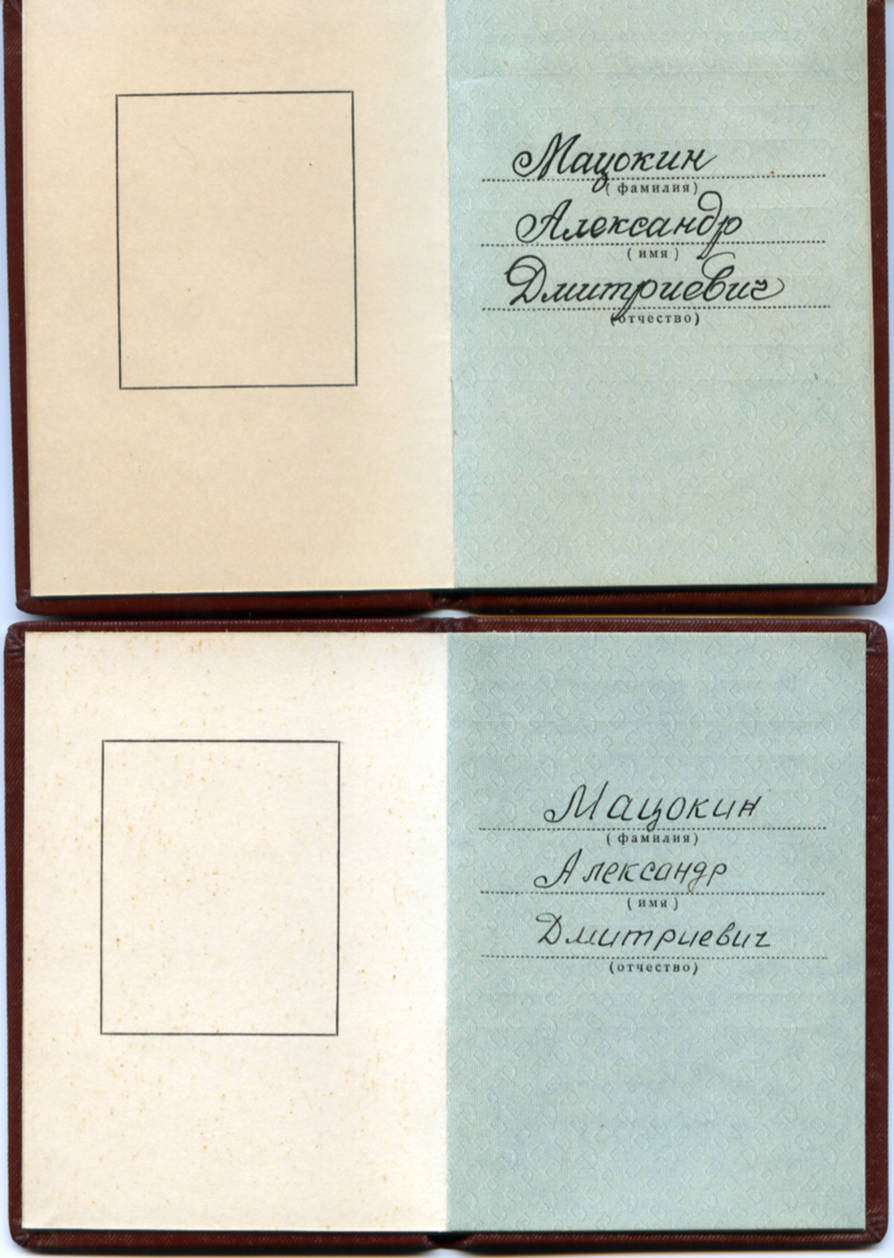 Мацокин
(фамилия)
Александр
(имя)
Дмитриевич
(отчество)
Мацокин
(фамилия)
Александр
(имя)
Дмитриевич
(отчество)